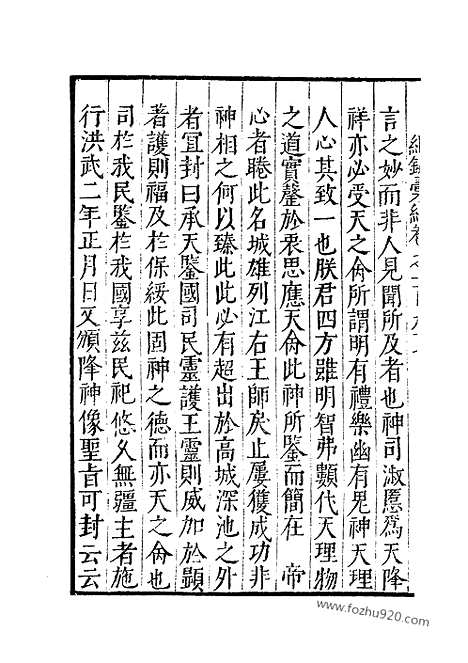 言之妙而非人見聞所及者也神司淑慝爲天降
祥亦必受天之命所謂明有禮樂幽有鬼神天理
人心其致一也朕君四方雖明智弗類代天理物
之道實罄於衷思應天命此神所鑒而簡在 帝
心者睠此名城雄列江右王師戾止屢獲成功非
神相之何以臻此此必有超出於高城深池之外
者宜封曰承天鑒國司民靈護王靈則威加於顯
著護則福及於保綏此固神之德而亦天之命也
司於我民鑒於我國享茲民祀悠久無疆主者施
行洪武二年正月日又頒降神像聖旨可封云云
www.fozhu920.com